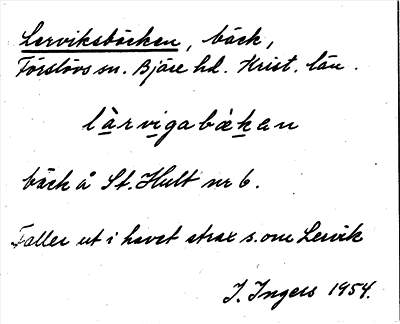 Lerviksbäcken, bäck,
Förslövs sn. Bjäre hd. Krist. län.
làrvigabækan
bäck å St. Hult nr 6.
Faller ut i havet strax s. om Lervik
I. Ingers 1954.